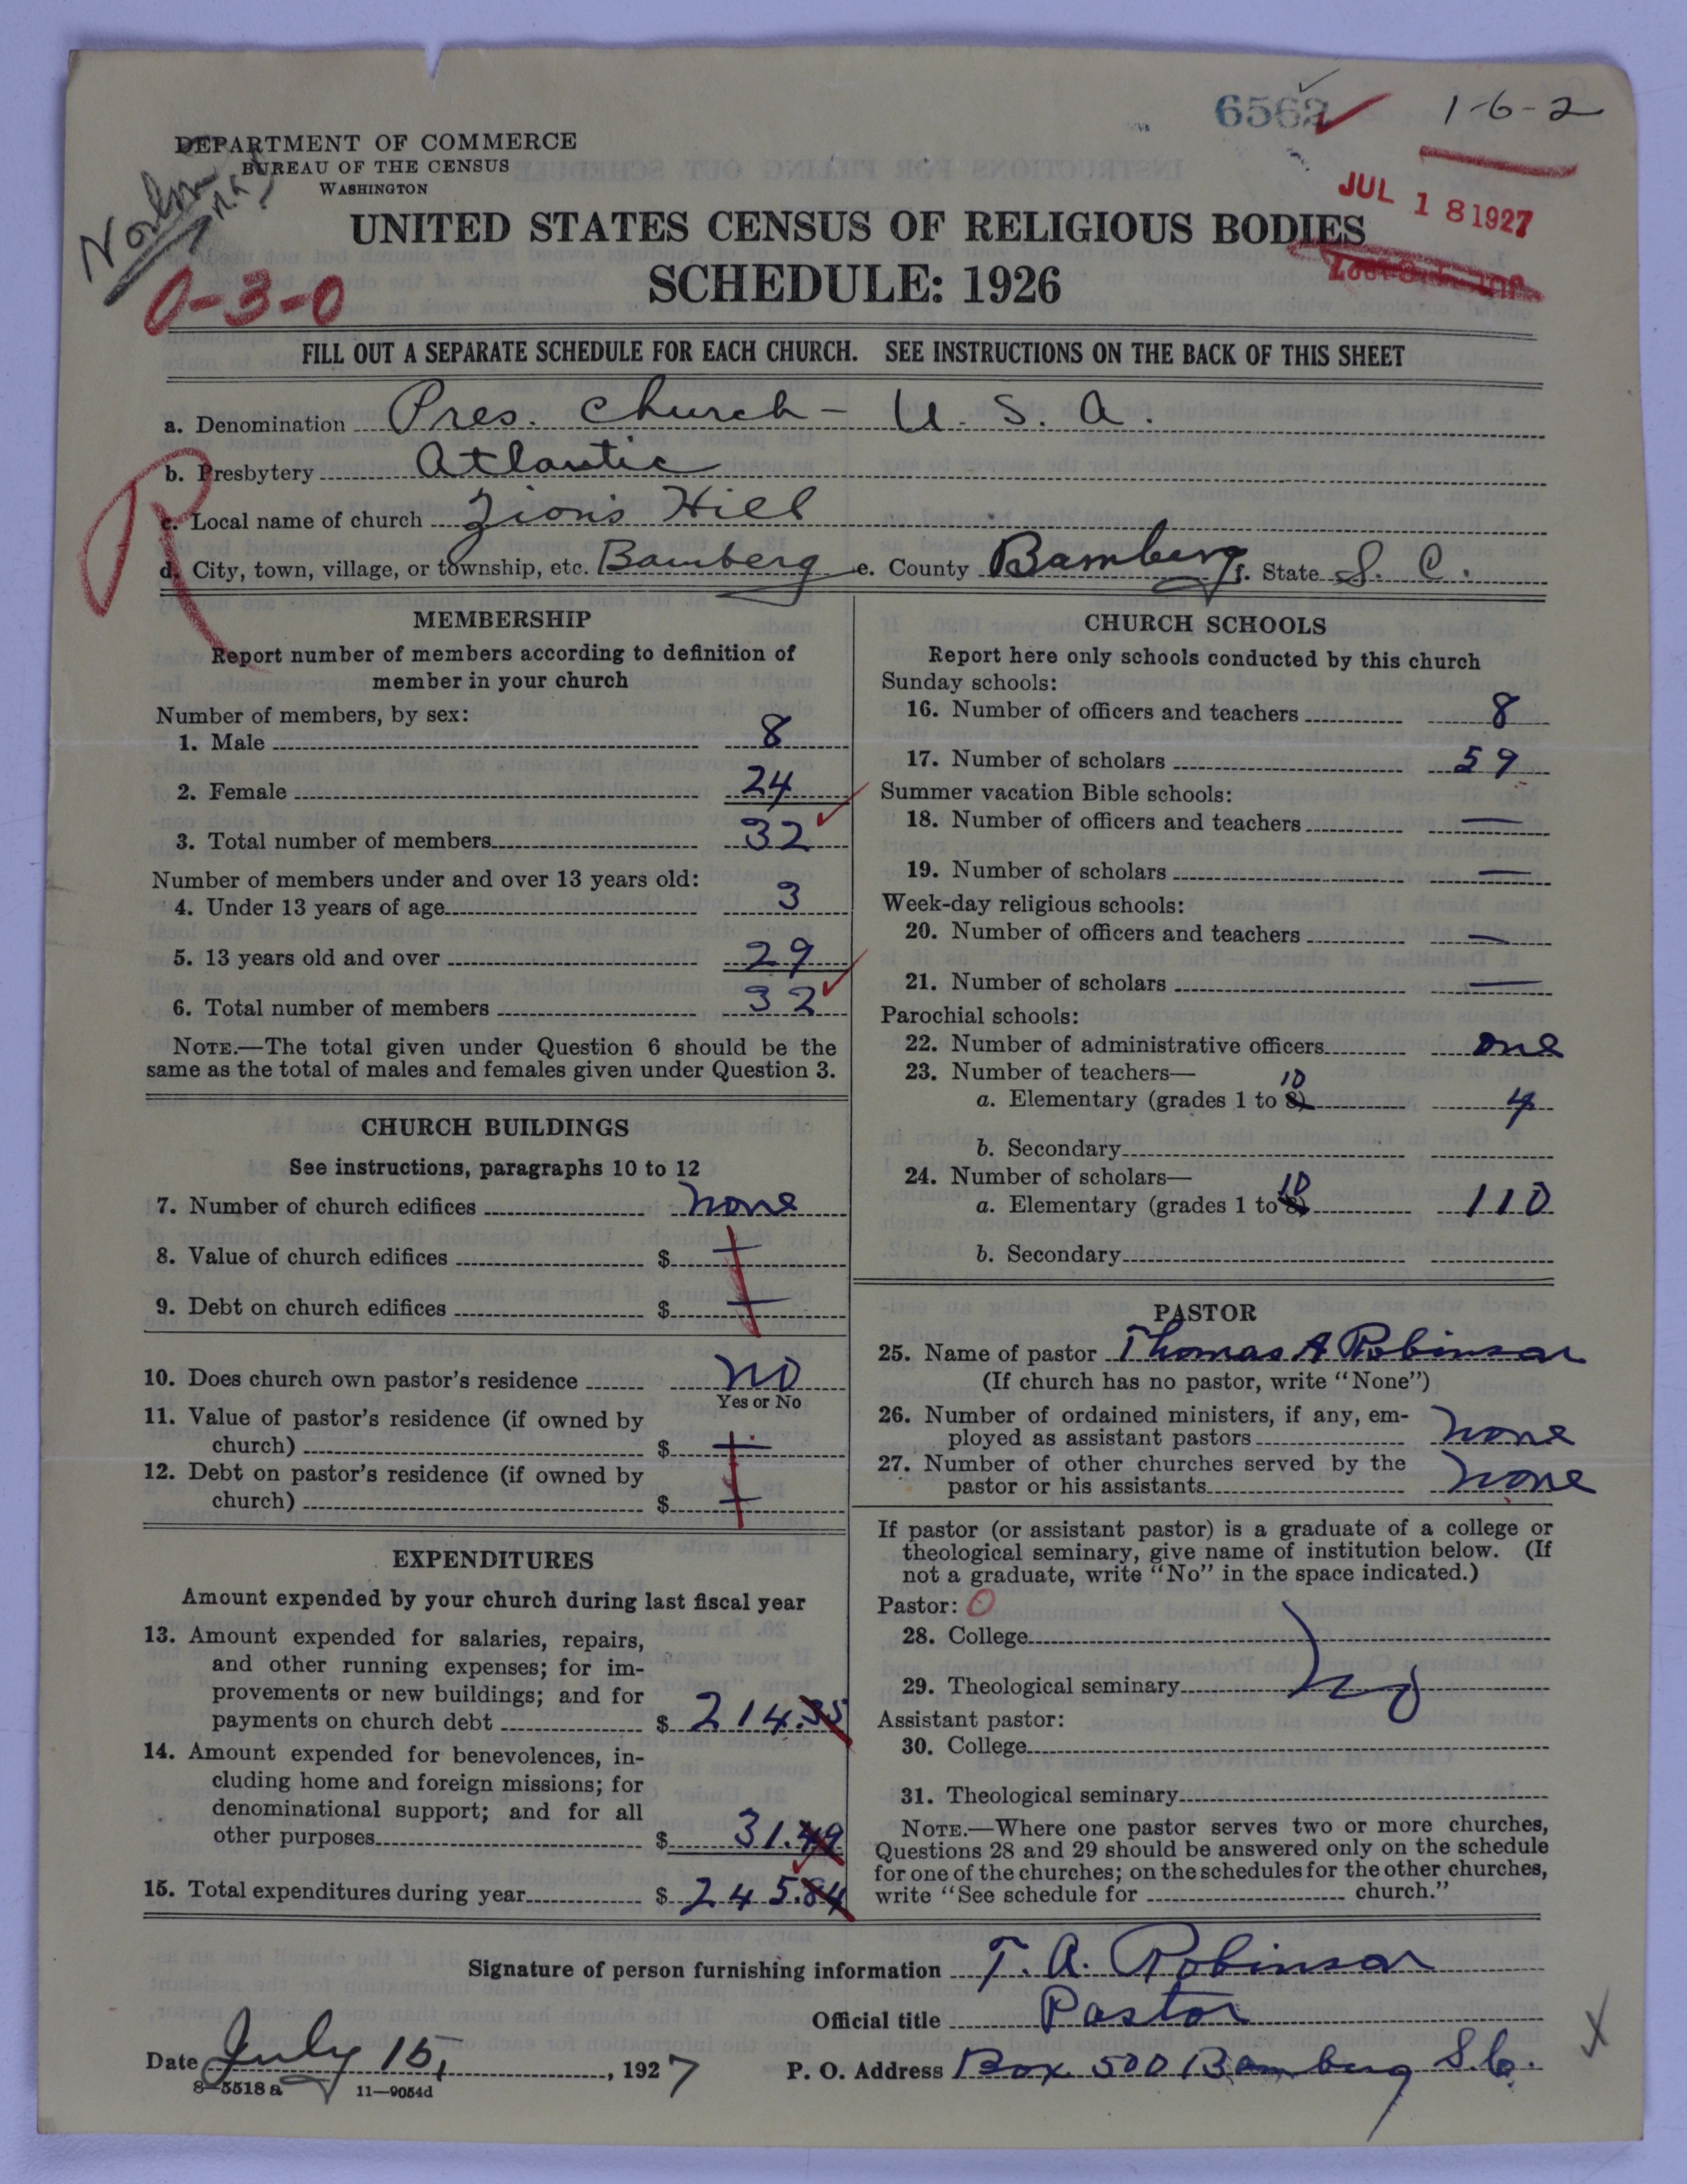 6562
1-6-2
DEPARTMENT OF COMMERCE
BUREAU OF THE CENSUS
WASHINGTON
JUL 18 1927
UNITED STATES CENSUS OF RELIGIOUS BODIES
SCHEDULE: 1926
0-3-0
FILL OUT A SEPARATE SCHEDULE FOR EACH CHURCH. SEE INSTRUCTIONS ON THE BACK OF THIS SHEET
a. Denomination Pres. Church - U. S. A.
b. Presbytery Atlantic
R
c. Local name of church Zions Hill
d. City, town, village, or township, etc. Bamberg e. County Bamberg f. State S. C.
MEMBERSHIP
Report number of members according to definition of
member in your church
Number of members, by sex:
1. Male 8
2. Female 24
3. Total number of members 32
Number of members under and over 13 years old:
4. Under 13 years of age 3
5. 13 years old and over 29
6. Total number of members 32
NOTE.—The total given under Question 6 should be the
same as the total of males and females given under Question 3.
CHURCH BUILDINGS
See instructions, paragraphs 10 to 12
7. Number of church edifices none
8. Value of church edifices $ —
9. Debt on church edifices $ —
10. Does church own pastor's residence no
Yes or No
11. Value of pastor's residence (if owned by
church) $ —
12. Debt on pastor's residence (if owned by
church) $ —
EXPENDITURES
Amount expended by your church during last fiscal year
13. Amount expended for salaries, repairs,
and other running expenses; for im-
provements or new buildings; and for
payments on church debt $ 214.35
14. Amount expended for benevolences, in-
cluding home and foreign missions; for
denominational support; and for all
other purposes $ 31.49
15. Total expenditures during year $ 245.84
CHURCH SCHOOLS
Report here only schools conducted by this church
Sunday schools:
16. Number of officers and teachers 8
17. Number of scholars 59
Summer vacation Bible schools:
18. Number of officers and teachers —
19. Number of scholars —
Week-day religious schools:
20. Number of officers and teachers —
21. Number of scholars —
Parochial schools:
22. Number of administrative officers one
23. Number of teachers—
10
a. Elementary (grades 1 to 8) 4
b. Secondary
24. Number of scholars—
10
a. Elementary (grades 1 to 8) 110
b. Secondary
PASTOR
25. Name of pastor Thomas A Robinson
(If church has no pastor, write "None")
26. Number of ordained ministers, if any, em-
ployed as assistant pastors none
27. Number of other churches served by the
pastor or his assistants none
If pastor (or assistant pastor) is a graduate of a college or
theological seminary, give name of institution below. (If
not a graduate, write "No" in the space indicated.)
Pastor: 0
28. College
29. Theological seminary No
Assistant pastor:
30. College
31. Theological seminary
NOTE.—Where one pastor serves two or more churches,
Questions 28 and 29 should be answered only on the schedule
for one of the churches; on the schedules for the other churches,
write "See schedule for church."
Signature of person furnishing information T. A. Robinson
Official title Pastor
X
Date July 15, 1927 P. O. Address Box 500 Bamberg S.C.
8-5518 a 11-9054d